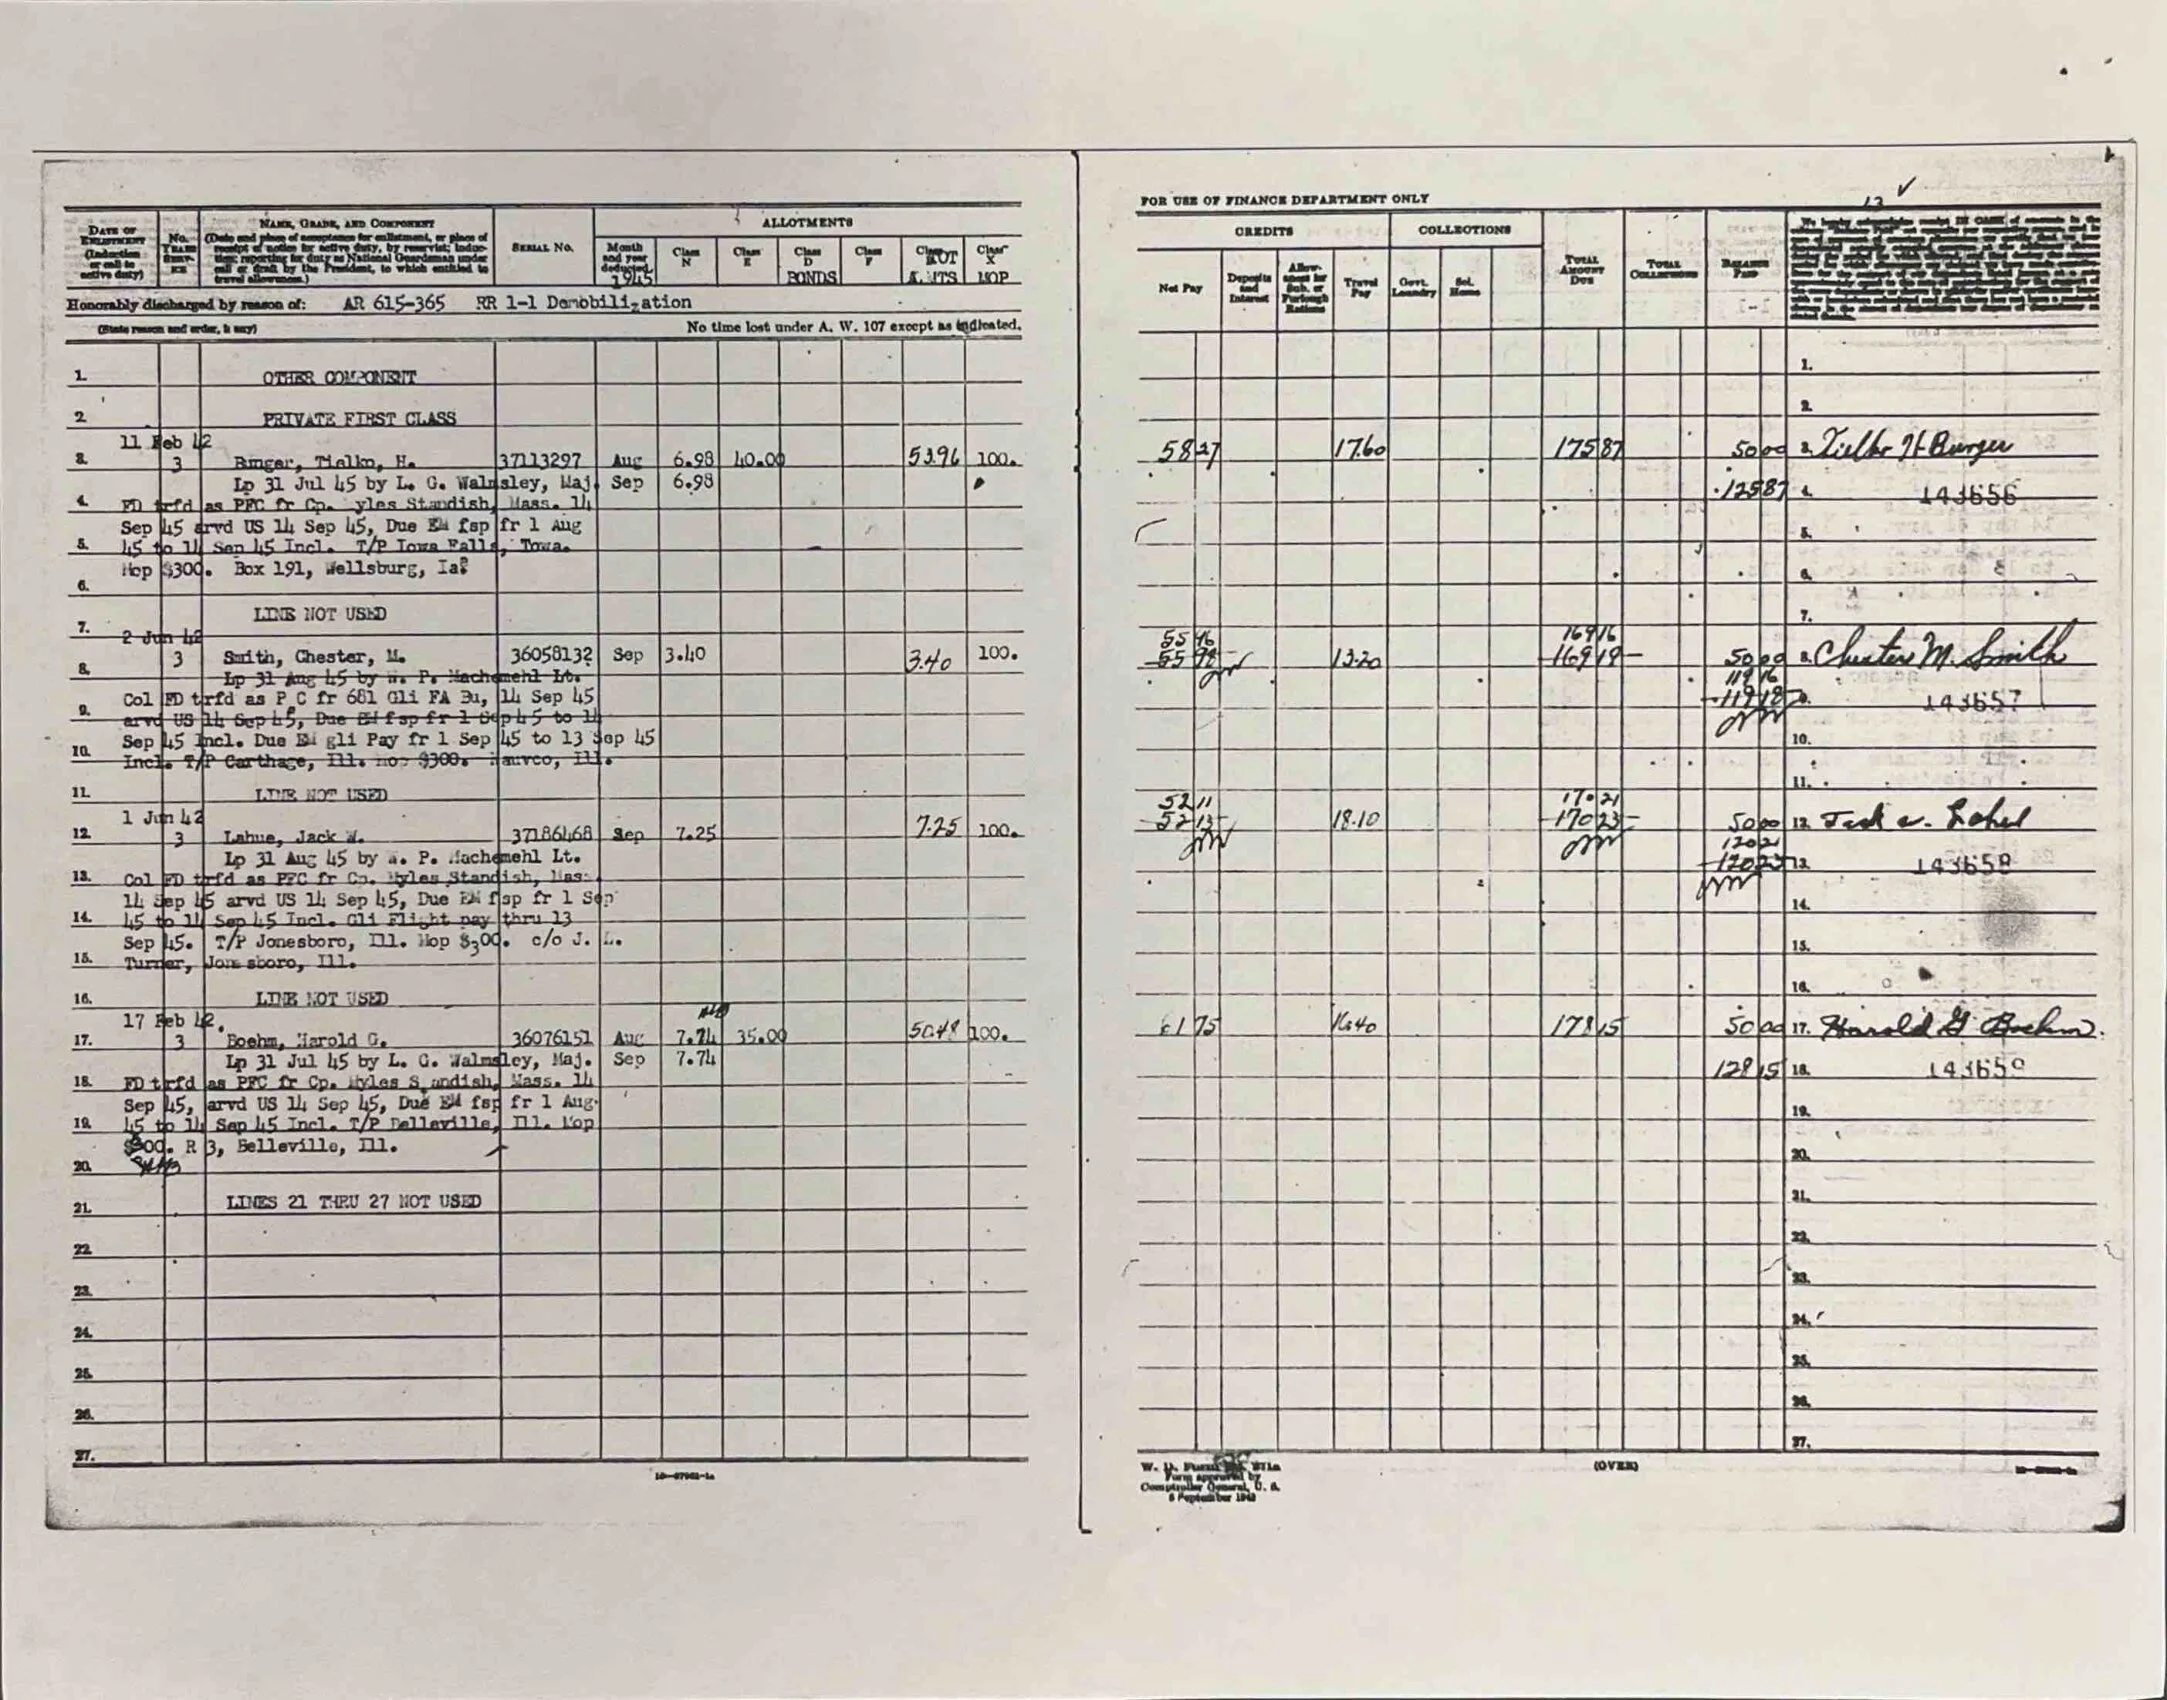 DATE OF ENLISTMENT (Induction or call to active duty)
NAME, GRADE, AND COMPONENT
(Date and place of acceptance for enlistment, or place of receipt of notice for active duty, by reservist; induction; reporting for duty as National Guardsman under call or draft by the President, to which entitled to travel allowances.)
SERIAL NO.
ALLOTMENTS
Month and year deducted 1945
Class N
Class E
Class D BONDS
Class F
Class X MOP
Honorably discharged by reason of: AR 615-365 RR 1-1 Demobilization
(State reason and order, if any) No time lost under A. W. 107 except as indicated.
1. OTHER COMPONENT
2. PRIVATE FIRST CLASS
11 Feb 42
3. 3 Burger, Tialko, H. 37113297 Aug 6.98 40.00 53.96 100.
Lp 31 Jul 45 by L. G. Walmsley, Maj. Sep 6.98
4. FD trfd as PFC fr Cp. yles Standish, Mass. 14
Sep 45 arvd US 14 Sep 45, Due EM fsp fr 1 Aug
5. 45 to 14 Sep 45 Incl. T/P Iowa Falls, Iowa.
Mop $300. Box 191, Wellsburg, Ia.
6.
LINE NOT USED
7.
2 Jun 42
8. 3 Smith, Chester, M. 36058132 Sep 3.40 3.40 100.
Lp 31 Aug 45 by W. P. Machemehl Lt.
Col FD trfd as P C fr 681 Gli FA Bu, 14 Sep 45
9. arvd US 14 Sep 45, Due EM fsp fr 1 Sep 45 to 14
Sep 45 Incl. Due EM gli Pay fr 1 Sep 45 to 13 Sep 45
10. Incl. T/P Carthage, Ill. Mop $300. Nauvoo, Ill.
11. LINE NOT USED
1 Jun 42
12. 3 Lahue, Jack W. 37186468 Sep 7.25 7.25 100.
Lp 31 Aug 45 by W. P. Machemehl Lt.
13. Col FD trfd as PFC fr Cp. Myles Standish, Mass.
14 Sep 45 arvd US 14 Sep 45, Due EM fsp fr 1 Sep
14. 45 to 14 Sep 45 Incl. Gli Flight pay thru 13
Sep 45. T/P Jonesboro, Ill. Mop $300. c/o J. L.
15. Turner, Jonesboro, Ill.
16. LINE NOT USED
17 Feb 42.
17. 3 Boehm, Harold G. 36076151 Aug 7.74 35.00 50.48 100.
Lp 31 Jul 45 by L. G. Walmsley, Maj. Sep 7.74
18. FD trfd as PFC fr Cp. Myles S andish, Mass. 14
Sep 45, arvd US 14 Sep 45, Due EM fsp fr 1 Aug
19. 45 to 14 Sep 45 Incl. T/P Belleville, Ill. Mop
$300. R 3, Belleville, Ill.
20.
21. LINES 21 THRU 27 NOT USED
22.
23.
24.
25.
26.
27.
FOR USE OF FINANCE DEPARTMENT ONLY
CREDITS
COLLECTIONS
Net Pay
Deposits and Interest
Allowances for Sub. or Furlough Rations
Travel Pay
Govt. Laundry
Sol. Home
TOTAL AMOUNT DUE
TOTAL COLLECTIONS
BALANCE PAID
1.
2.
58 27 17.60 175 87 50 00 3. Tialko H Burger
125 87 4. 143656
5.
6.
7.
55 46 169 16
55 98 13.20 169 18 50 00 8. Chester M. Smith
119 16
119 18 9. 143657
10.
11.
52 11 170 21
52 13 18.10 170 23 50 00 12. Jack W. Lahue
120 21
120 23 13. 143658
14.
15.
16.
61 75 16.40 178 15 50 00 17. Harold G Boehm.
128 15 18. 143659
19.
20.
21.
22.
23.
24.
25.
26.
27.
Form approved by
Comptroller General, U. S.
(OVER)